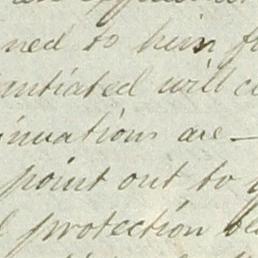 ned to him f
antiated will c
inuations are —
point out to y
protection be